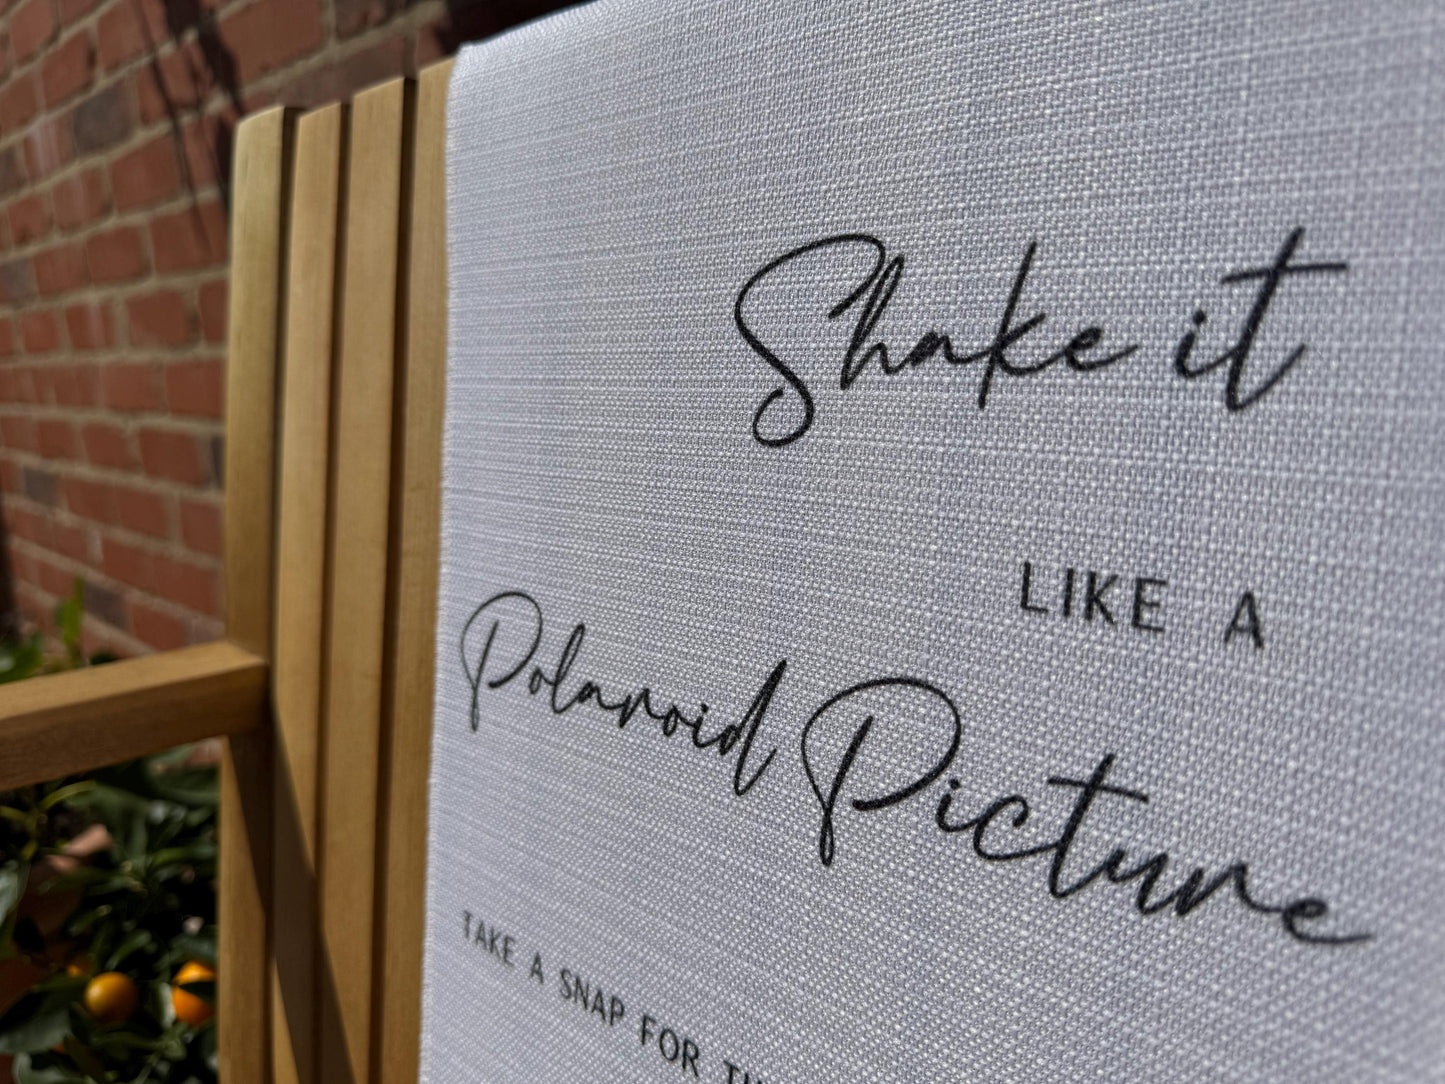 Shake it
LIKE A
Polaroid Picture
TAKE A SNAP FOR